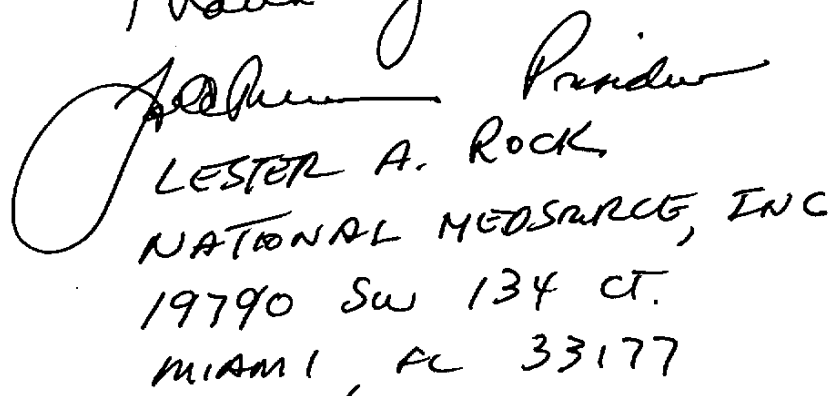 President
LESTER A. ROCK
NATIONAL MEDSOURCE, INC
19790 SW 134 CT.
MIAMI, FL 33177